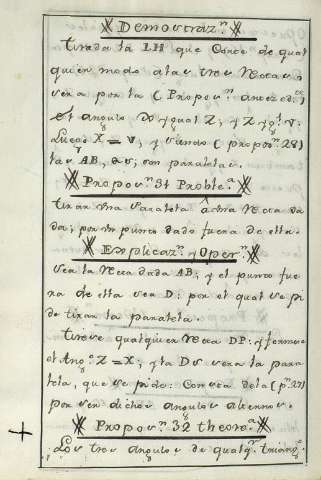 Demostraz.ⁿ
Tirada la LH que Corte de qual
quier modo a las tres Rectas
sera por la (Propos.ⁿ anteced.)
el angulo igual Z, y Z yg.l V.
Luego X = V, y siendo (propos.ⁿ 28)
las AB, son paralelas.
Propos.ⁿ 31 Proble.ª
Tirar una Paralela á una Recta da
da; por un punto dado fuera de ella.
Explicaz.ⁿ y Oper.ⁿ
Sea la Recta dada AB, y el punto fue
ra de ella sea D: por el qual se pi
de tirar la paralela.
Tirese qualquier Recta DP: y formese
el Ang.º Z = X; y la DS sera la para
lela, que se pide: Consta de la (p.ⁿ 27)
por ser dichos angulos alternos.
Propos.ⁿ 32 theore.ª
Los tres angulos de qualq.r triang.º